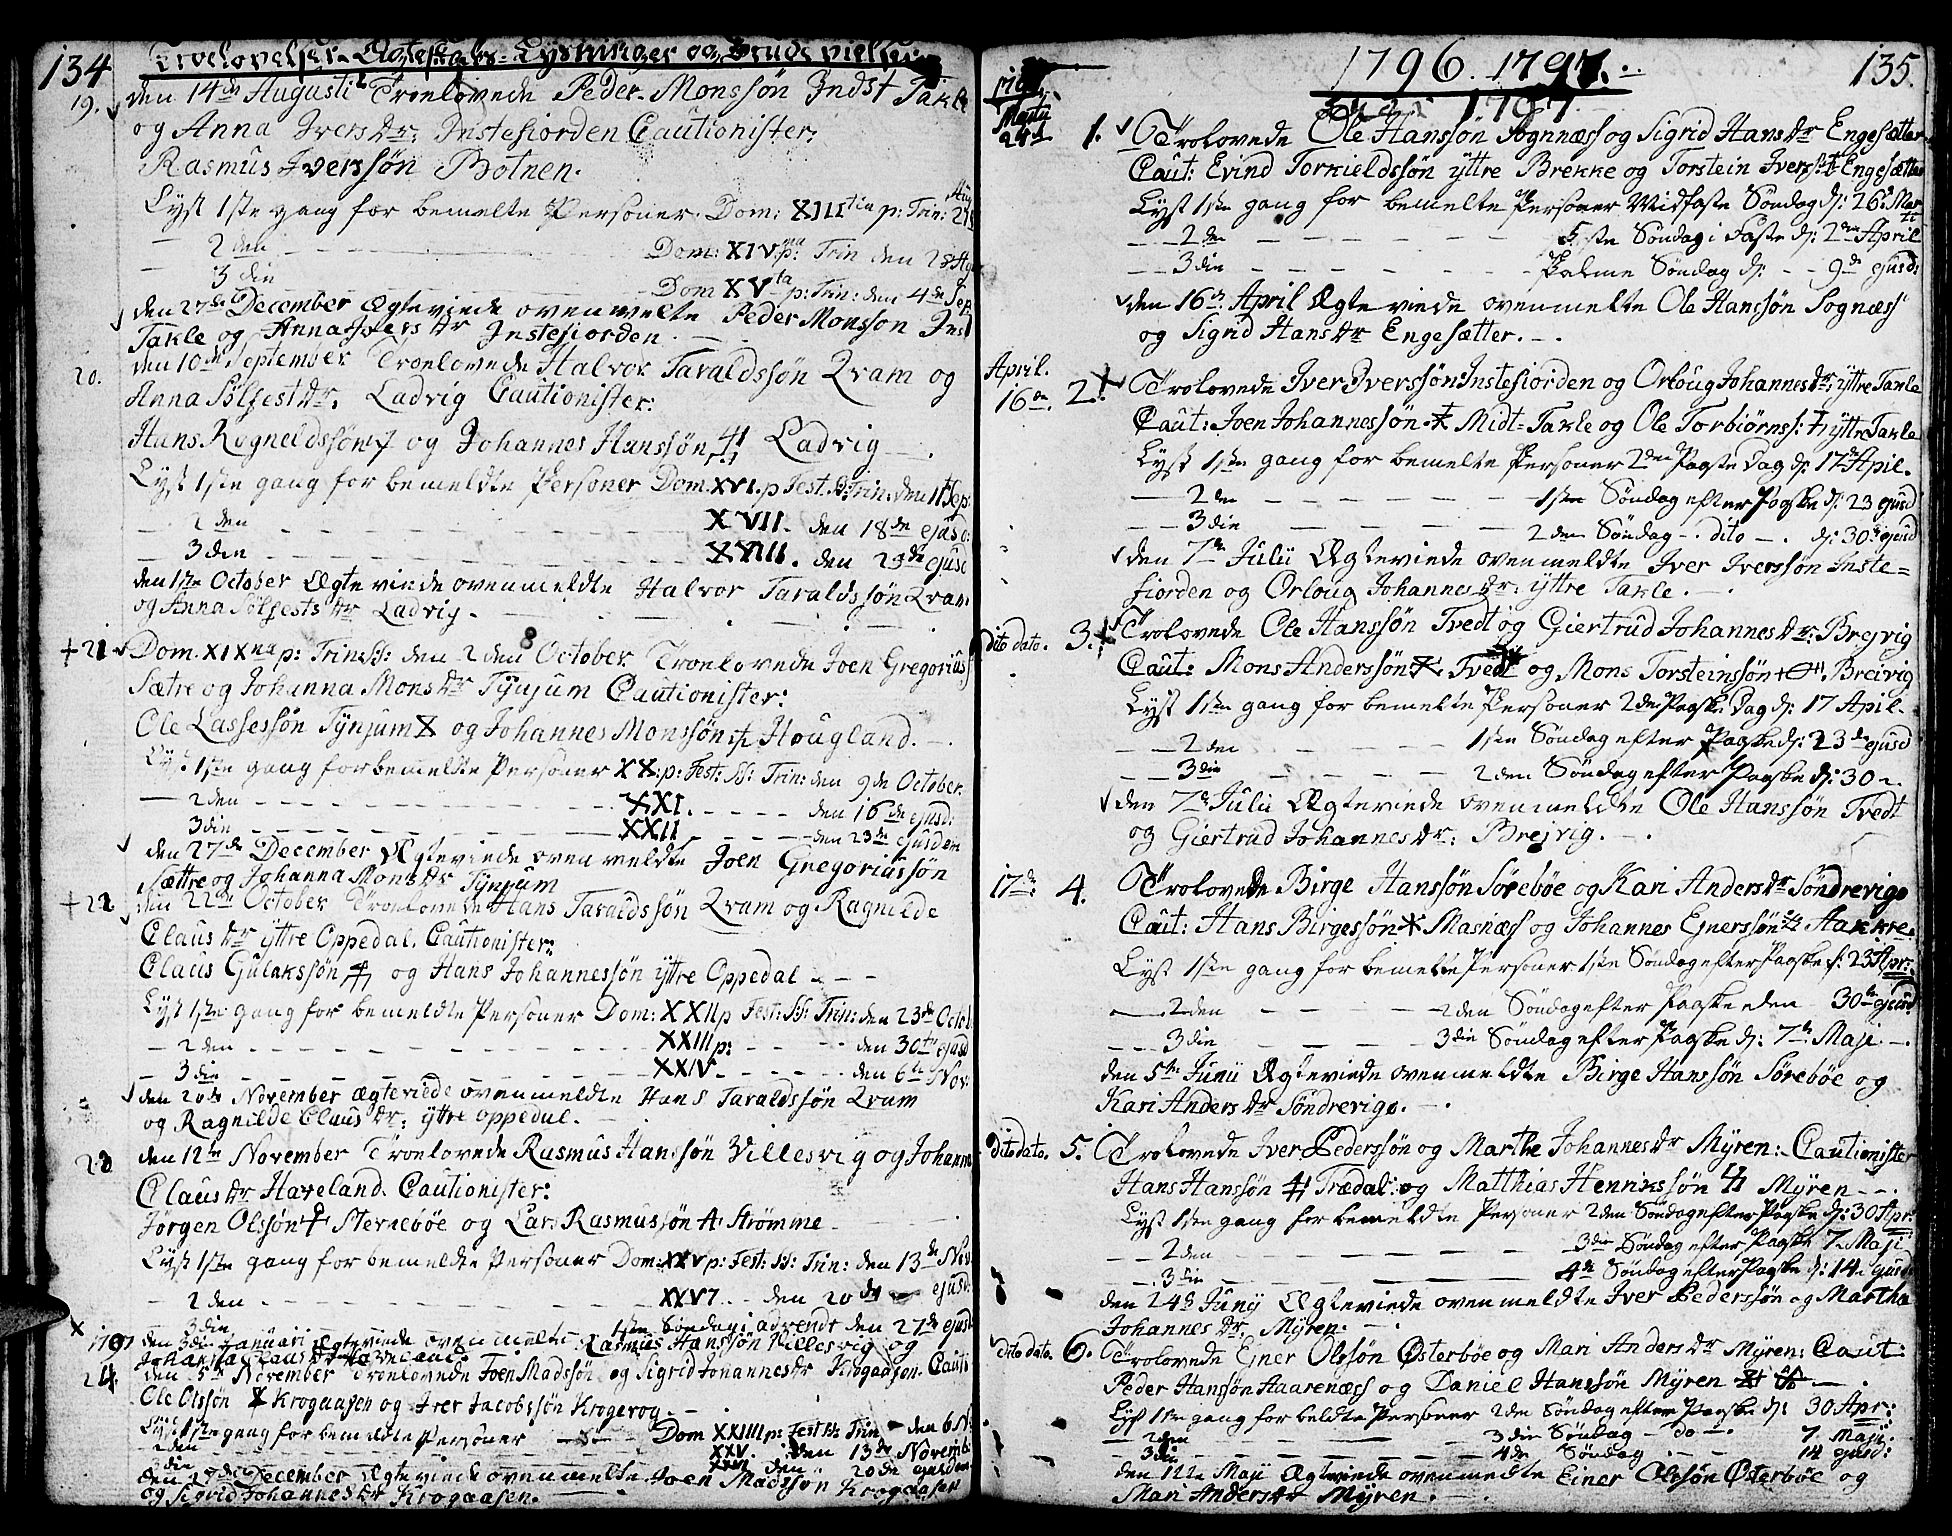 134 Troelovelser Ægteskabs-Lysninger og Brudevielser
19. den 14de Augusti Troelovede Peder Monssøn Indst Takle
og Anna Ivers dr: Instefiorden Cautionister,
Rasmus Iverssøn Botnen.
Lyst 1ste gang for bemelte Personer. Dom: XIIItia p: Trin: 21 Aug
— 2den — — — Dom: XIV p: Trin den 28 Aug
— 3die — — — Dom XVta p: Trin: den 4de Sep
den 27de December Ægteviede ovenmelte Peder Monsson Inst
Takle og Anna Ivers dr Instefiorden.
20. den 10de September Troelovede Halvor Taraldssøn Qvam og
Anna Sølfest dr. Ladvig Cautionister:
Hans Rogneldssøn og Johannes Hanssøn Ladvig
Lyst 1ste gang for bemeldte Personer Dom. XVI. p Fest. S: Trin: den 11te Sep:
— 2den — — — XVII. den 18de ejusd:
— 3den — — — XVIII. den 25de ejusd
den 1ste October Ægteviede ovenmeldte Halvor Taraldssøn Qvam
og Anna Sølfests dr Ladvig.
+21 Dom. XIXna p: Trin: S: den 2den October Troelovede Joen Gregoriuss
Sætre og Johanna Mons dr Tynjum Cautionister:
Ole Lassessøn Tynjum og Johannes Monssøn Hougland.
Lyst 1ste gang for bemeldte Personer XX: p: Fest: SS: Trin: den 9de October.
— 2den — — — XXI. — — den 16de ejusd:
3die — — — XXII — — den 23de ejusdem
den 27de December Ægteviede ovenmeldte Joen Gregoriussøn
Sættre og Johanna Mons dr Tynjum
+22 den 22de October Troelovede Hans Taraldssøn Qvam og Ragnilde
Claus dr yttre Oppedal. Cautionister:
Claus Gulakssøn og Hans Johannessøn yttre Oppedal
Lyst 1ste gang for bemeldte Personer Dom: XXII p Fest: SS: Trin: den 23de Octob
— 2den — — — XXIII p: — — den 30te ejusd
— 3die — — — XXIV — — den 6te Nov:
den 20de November ægteviede ovenmeldte Hans Taraldssøn Qvam
og Ragnilde Claus dr: yttre oppedal.
23 den 12te November Troelovede Rasmus Hanssøn Villesvig og Johann
Claus dr Haveland. Cautionister:
Jørgen Olssøn Sternebøe og Lars Rasmussøn Strømme
Lyst 1ste gang for bemeldte Personer Dom: XXV p: Fest: SS: Trin: den 13de Nov.
— 2den — — — XXVI — den 20de ejusd:
— 3die — — — 1ste Søndag i advendt den 27de ejusd
1797 den 3die Januari Ægteviede ovenmelte Rasmus Hanssøn Villesvig og
Johanna Claus dr Haveland.
24 den 5te November Troelovede Joen Madssøn og Sigrid Johannes dr Krogaasen. Cauti
Ole Olssøn Krogaasen og Iver Jacobssøn Krogevog
Lyst 1ste gang for bemeldte Personer — Dom XXIIII p: Fest SS: Trin — den 6 N:
2den — — — XXV — den 13de Novemb:
3die — — — XXVI den 20de ejusdem
den 27de December Ægteviede ovenmelte Joen Madssøn Krogaasen
og Sigrid Johannes dr Krogaasen.
1796. 1797. 135.
1797
Martii
24de 1. Trolovede Ole Hanssøn Sognnæss og Sigrid Hans dr Engesætter
Caut: Evind Torkieldssøn yttre Brekke og Torstein Iverss: Engesætter
Lyst 1ste gang for bemelte Personer Midfaste Søndag d: 26 Mar
— 2den — — — 5te Søndag i Faste d: 2den April
— 3die — — — Palme Søndag d: — 9de ejusd:
den 16de April Ægteviede ovenmelte Ole Hanssøn Sognæss
og Sigrid Hans dr Engesætter.
April.
16de. 2. Trolovede Iver Iverssøn Instefiorden og Orloug Johannes dr: yttre Takle
Caut: Joen Johannessøn Midt-Takle og Ole Torbiørnss: yttre Takle
Lyst 1ste gang for bemelte Personer 2den Paaske Dag d: 17de April.
— 2den — — — 1ste Søndag efter Paaske d: 23 ejusd
— 3die — — — 2den Søndag — dito — d: 30te ejusd
den 7de Julii Ægteviede ovenmeldte Iver Iverssøn Inste-
fiorden og Orloug Johannes dr: yttre Takle.
Dito dato. 3. Trolovede Ole Hanssøn Tvedt og Giertrud Johannes dr: Brejvig
Caut: Mons Anderssøn Tvedt og Mons Torsteinssøn Breivig
Lyst 1ste gang for bemelte Personer 2den Paaske Dag d: 17 April.
— 2den — — — 1ste Søndag efter Paaske d: 23de ejusd
— 3die — — — 2den Søndag efter Paaske d: 30
den 7de Julii Ægteviede ovenmeldte Ole Hanssøn Tvedt
og Giertrud Johannes dr: Brejvig.
17de: 4. Trolovede Birge Hanssøn Sørebøe og Kari Anders dr Søndrevige
Caut: Hans Birgessøn Masnæs og Johannes Ejnerssøn Aakre.
Lyst 1ste gang for bemelte Personer 1ste Søndag efter Paaske d: 23 Apr:
— 2den — — — 2den Søndag efter Paaske den 30te ejusd
— 3die — — — 3die Søndag efter Paaske d: 7de Maji
den 5te Junii Ægteviede ovenmeldte Birge Hanssøn Sørebøe og
Kari Anders dr Søndrevige.
Dito dato. 5. Trolovede Iver Pederssøn og Marthe Johannes dr Myren: Cautionister
Hans Hanssøn Trædal: og Matthias Henrikssøn Myren
Lyst 1ste gang for bemeldte Personer 2den Søndag efter Paaske d: 30 Apr:
— 2den — — — 3die Søndag efter Paaske 7 Maji
— 3die — — — 4de Søndag efter Paaske d: 14. ejusd
den 24de Junij Ægteviede ovenmeldte Iver Pederssøn og Martha
Johannes dr. Myren.
Dito dato. 6. Trolovede Ejner Olssøn Østerbøe og Mari Anders dr Myren: Caut:
Peder Hanssøn Haarenæss og Daniel Hanssøn Myren
Lyst 1ste gang for beldte Personer 2den Søndag efter Paaske d: 30 Apr:
— 2den — — — 3die Søndag — do — 7. Maji:
— 3die — — — 4de Søndag — 14 ejusd:
den 11te Maji Ægteviede ovenmeldte Einer Olssøn Østerbøe og
Mari Anders dr Myren.